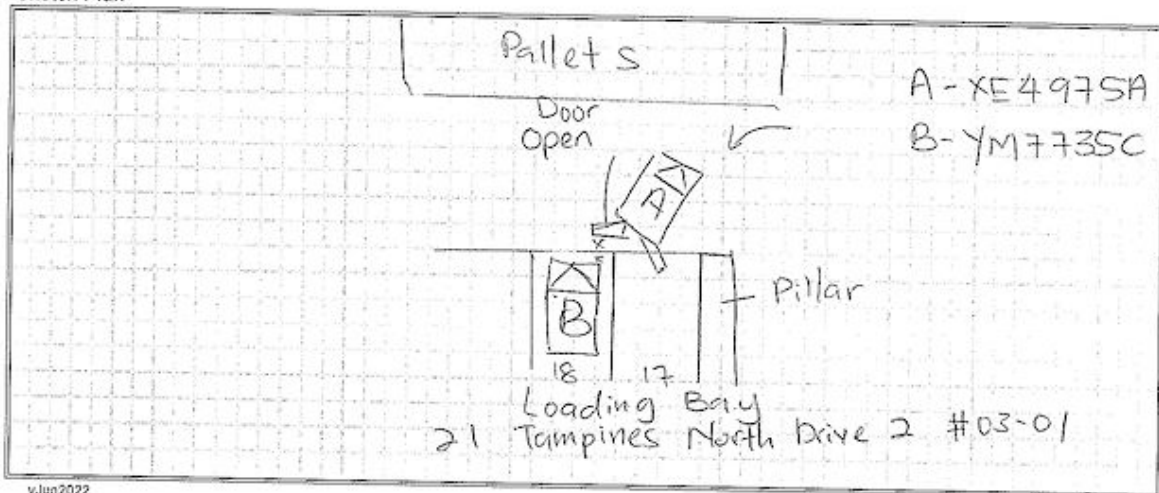 Pallets
A - XE4975A
Door
Open
B - YM7735C
A
B
Pillar
18 17
Loading Bay
21 Tampines North Drive 2 #03-01
vJun2022